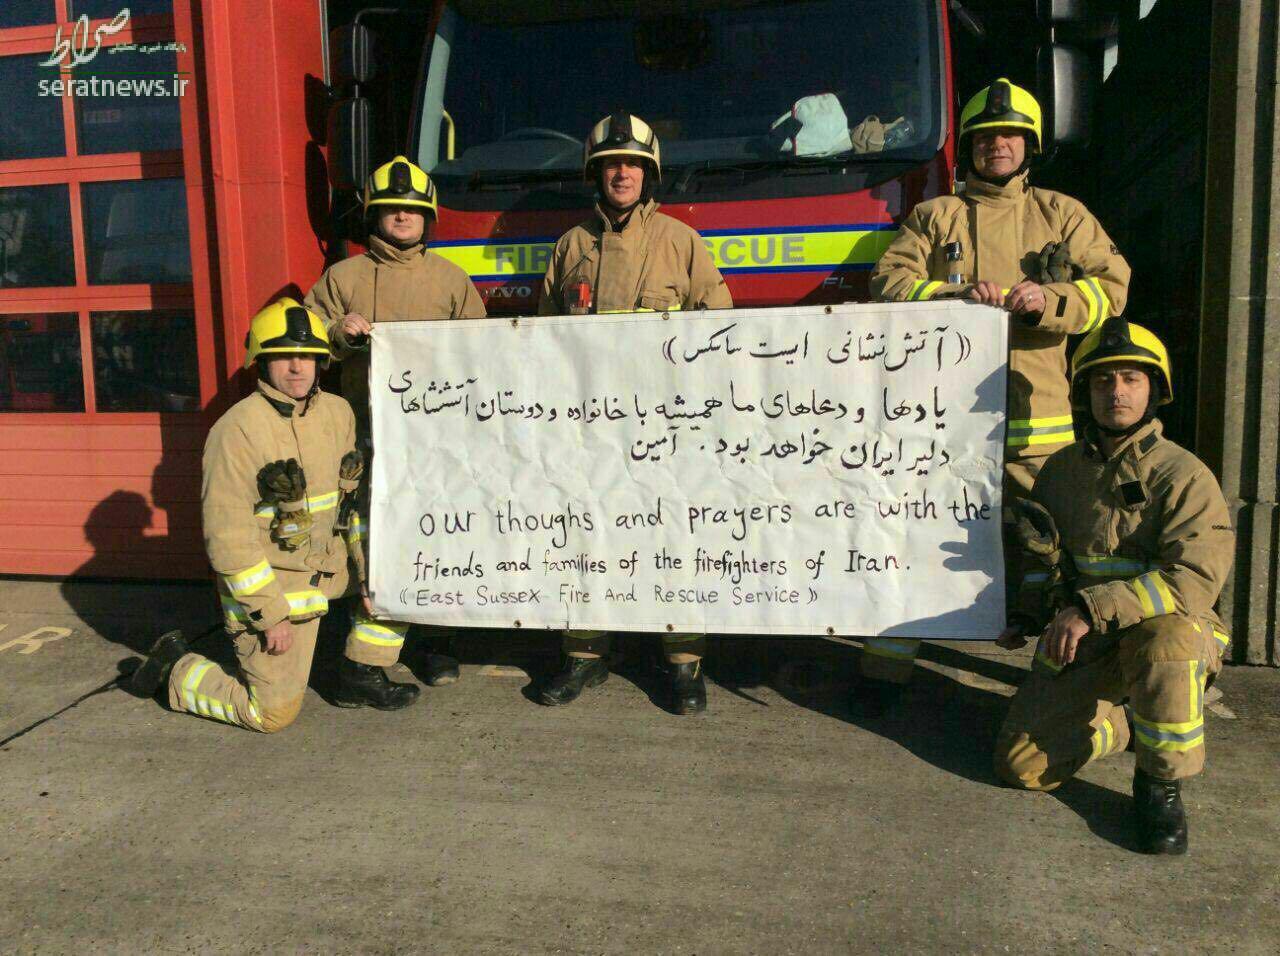 صراط
پایگاه خبری تحلیلی
seratnews.ir
FIRE
FIR SCUE
VOLVO
FL
((آتش نشانی ایست ساسکس))
یادها و دعاهای ما همیشه با خانواده و دوستان آتشنشاهای
دلیر ایران خواهد بود. آمین
our thoughs and prayers are with the
friends and families of the firefighters of Iran.
((East Sussex Fire And Rescue Service))